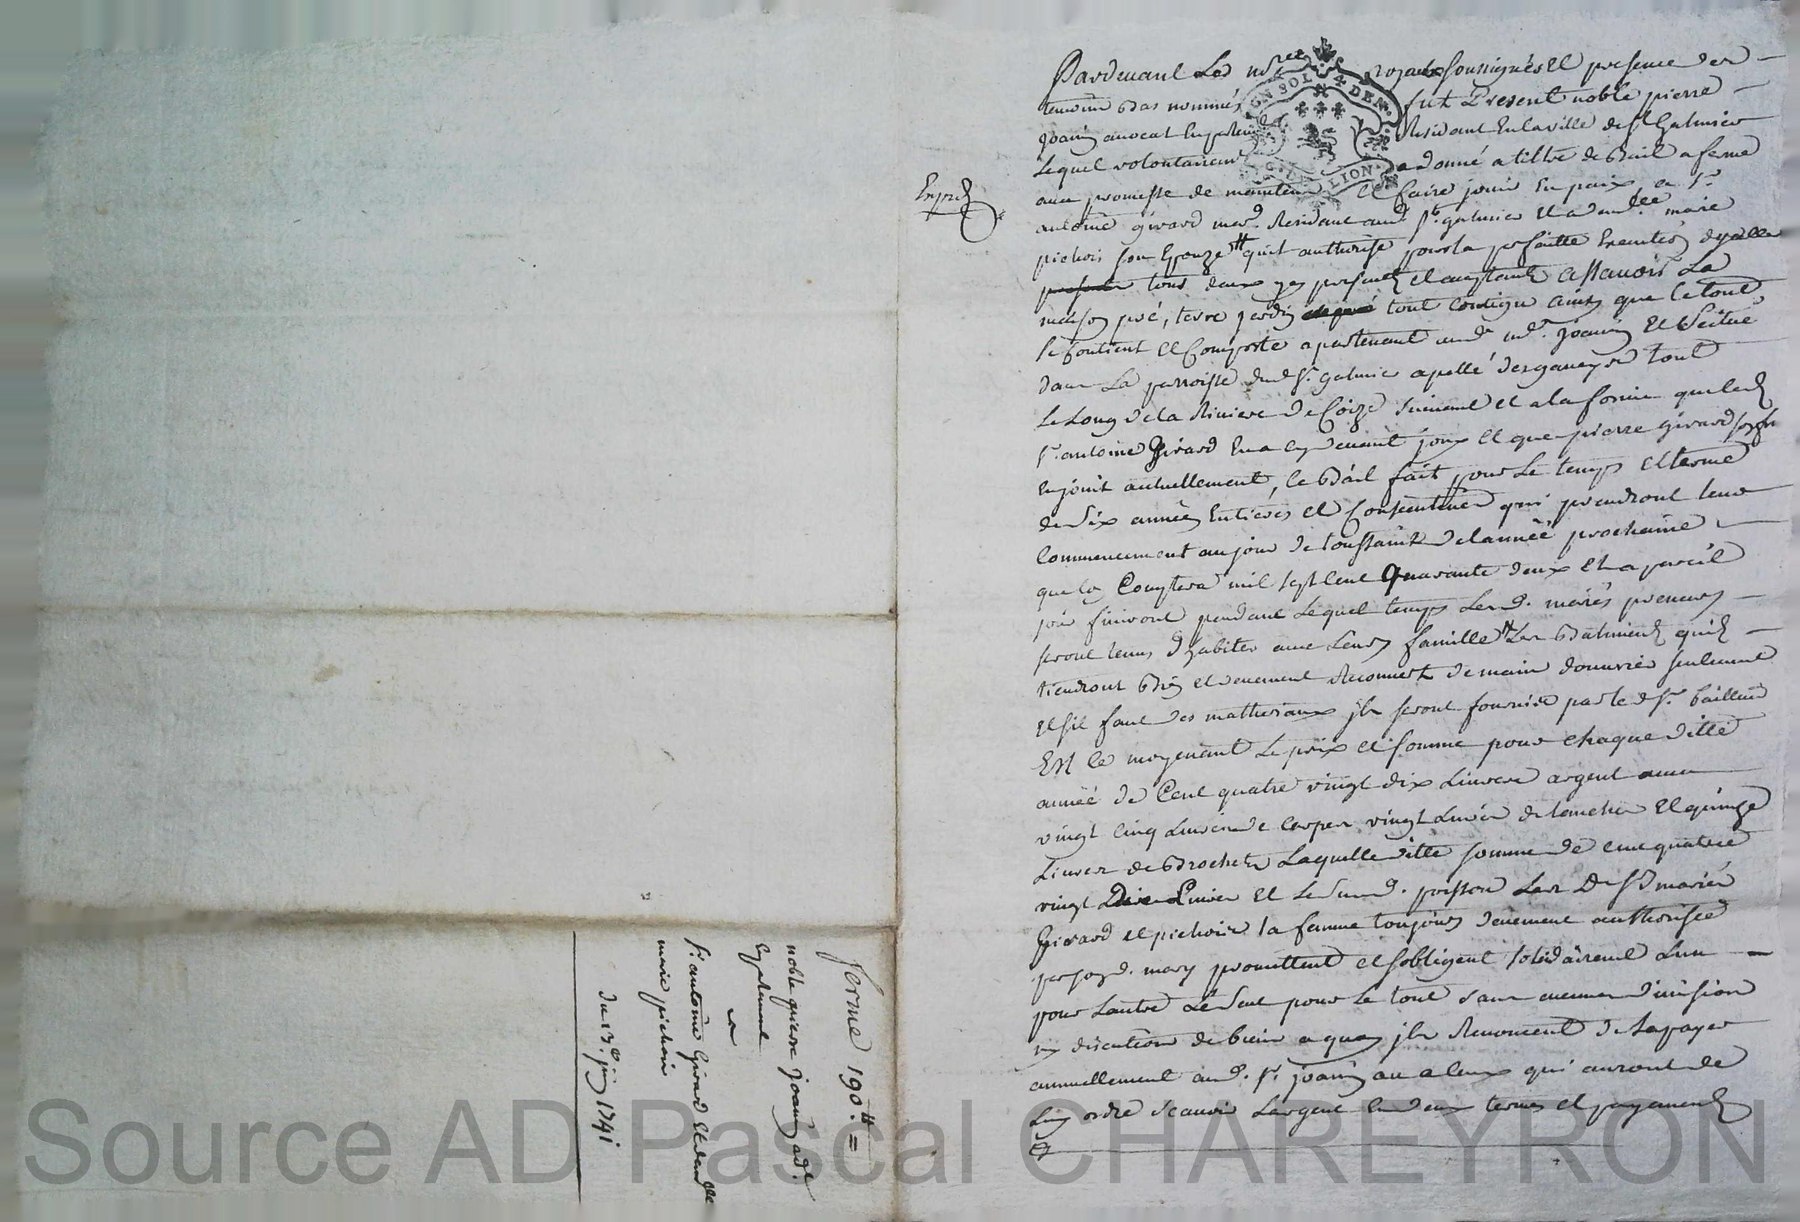 Pardevant Les no.res royaux soussignés et presence des
temoins Bas nommés fut Present noble pierre
Joanin avocat En parlem.t Residant En la ville de St Galmier
Lequel volontairem.t a donné a tiltre de Bail a ferme
avec promesse de maintenir et faire jouir En paix a Sr
antoine girard mar.d Residant aud. St. galmier et a dem.lle marie
pichois son Epouze qu'il authorise pour la perfaitte Execution
tous deux presents et acceptants assavoir La
maison pré, terre jardin tout contigu ainsy que le tout
se contient et Comporte apartenant aud. Sr. Joanin et scitué
dans La parroisse dud. St. galmier apellé desganeys tout
Le Long de la Riviere de Coize suivant et a la forme que led.
Sr. antoine Girard En a cy devant jouy et que pierre girard
En jouit actuellement, ce Bail fait pour Le temps et terme
de Six années Entieres et Consecutives qui prendront leur
Commencement au jour de toussaint de l'année prochaine
que lon Comptera mil sept cent Quarante deux et a pareil
jour finiront pendant Lequel temps Lesd. mariés preneurs
seront tenus d'habiter avec Leurs famille Les Batiments qu'ils
tiendront Bien et deuement Recouverts de main d'ouvrier seulement
et s'il faut des matheriaux ils seront fournis par led. Sr. Bailleur
Est ce moyenant Le prix et somme pour chaque ditte
année de Cent quatre vingt dix Livres argent avec
vingt cinq Livres de carpes vingt Livres de tanches et quinze
Livres de Brochets Laquelle ditte somme de cent quatre
vingt Dix Livres et Le susd. poisson Les Dits mariés
Girard et pichois sa femme toujours deuement authorisée
par sond. mary promettent et s'obligent solidairement L'un
pour L'autre Le seul pour Le tout sans aucune division
ny discution de biens a quoy ils Renoncent de La payer
annuellement aud. Sr. joanin ou a ceux qui auront de
Luy ordre scavoir L'argent En deux termes et payements
Ferme 190.tt =
noble pierre Joanin ad.t
En parlement
a
Sr. antoine Girard et dem.lle
marie pichois
du 13e juin 1741
Source AD Pascal CHAREYRON